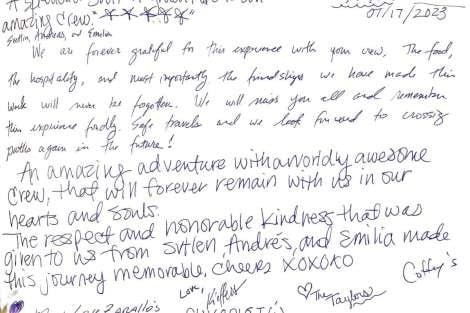 amazing crew." ☆☆☆☆☆
07/17/2023
Sutlin, Andreas, and Emilia
We are forever grateful for this experience with your crew. The food,
the hospitality, and most importantly the friendships we have made this
week will never be forgotten. We will miss you all and remember
this experience fondly. Safe travels and we look forward to crossing
paths again in the future!
An amazing adventure with a worldly awesome
crew, that will forever remain with us in our
hearts and souls.
The respect and honorable kindness that was
given to us from Sutlen, Andrés, and Emilia made
this journey memorable, cheers XOXOXO
Love,
♡ The Taylors
Coffey's